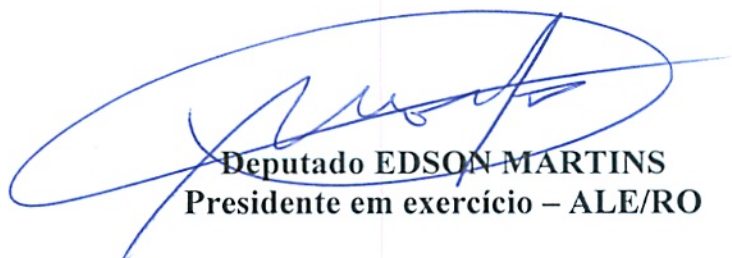 Deputado EDSON MARTINS
Presidente em exercício – ALE/RO